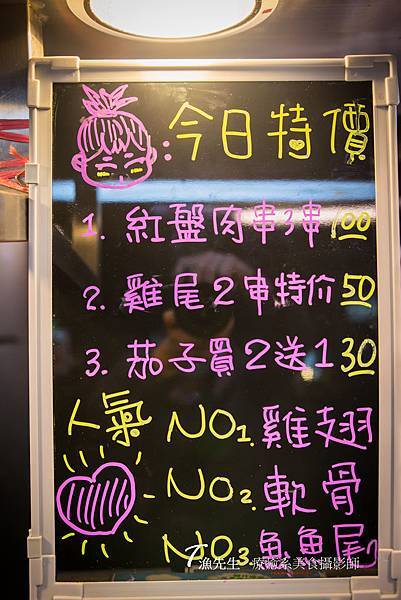 今日特價
1. 紅盤肉串3串100
2. 雞尾2串特价50
3. 茄子買2送1 30
人氣
NO1. 雞翅
NO2. 軟骨
NO3. 魚魚尾
漁先生 療癒系美食攝影師